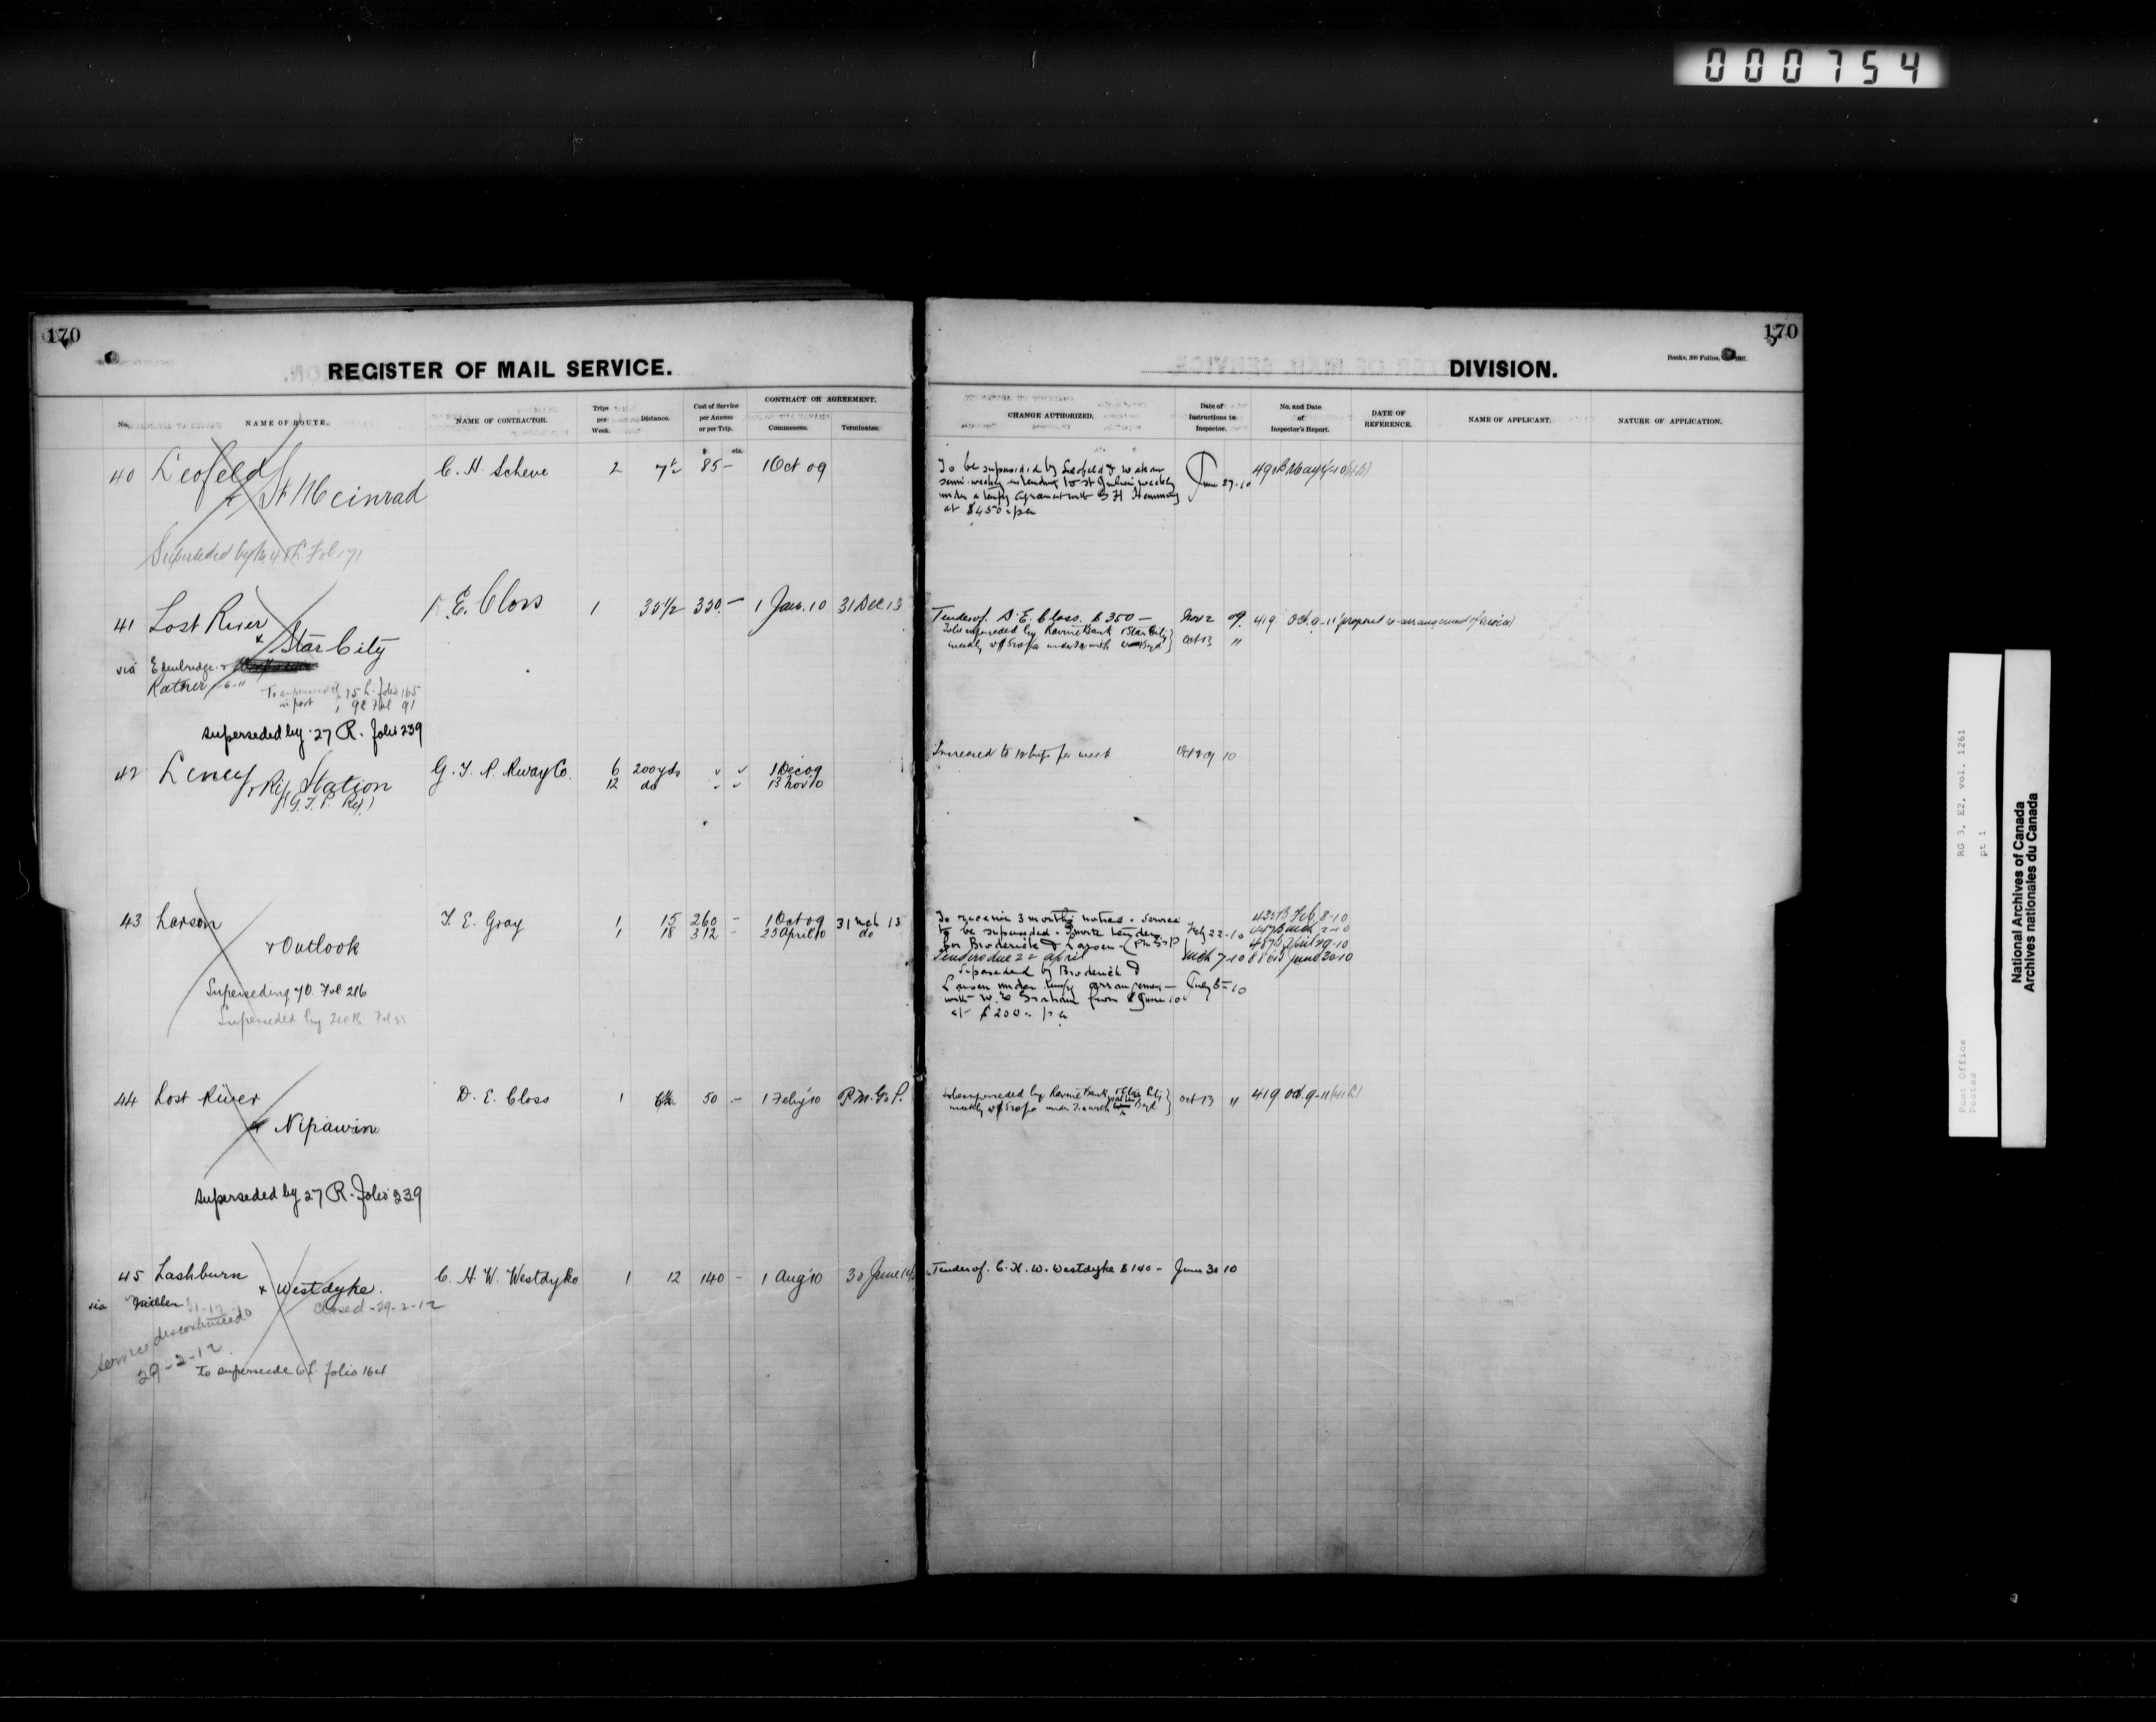 000754
170
REGISTER OF MAIL SERVICE.
No. NAME OF ROUTE. NAME OF CONTRACTOR. Trips per Week. Distance. Cost of Service per Annum or per Trip. CONTRACT OR AGREEMENT. Commences. Terminates.
$ cts.
40 Leofeld & St Meinrad C. H. Scheve 2 7½ 85 – 1 Oct 09
Superseded by Fol 171
41 Lost River & Star City D. E. Closs 1 35½ 350 – 1 Jan. 10 31 Dec 13
via Edenbridge &
Ratner
To supersede 15 L. folio 165
in part 9 E Fol 91
superseded by 27 R. folio 239
42 Leney & Ry Station G. T. P. Rway Co. 6 200 yds 1 Dec 09
(G. T. P. Ry) 12 do 13 Nov 10
43 Larson T. E. Gray 1 15 260 – 1 Oct 09 31 Mch 13
& Outlook 1 18 312 – 25 April 10 do
Superseding 70. Fol 216
Superseded by Fol
44 Lost River D. E. Closs 1 6½ 50 – 1 Feby 10 P.M.G.P.
& Nipawin
superseded by 27 R. Folio 239
45 Lashburn & Westdyke. C. H. W. Westdyke 1 12 140 – 1 Aug 10 30 June
via Miller closed - 29-2-12
service discontinued
29-2-12
To supersede 6 L. folio 164
170
DIVISION.
Books, 300 Folios.
CHANGE AUTHORIZED. Date of Instructions to Inspector. No. and Date of Inspector's Report. DATE OF REFERENCE. NAME OF APPLICANT. NATURE OF APPLICATION.
To be superseded by Leofeld & Wakaw
semi-weekly extending to St Julien weekly June 27-10
under a tempy agreement with G H Hemming
at $450 – pa
Tender of D. E. Closs. $350 – Nov 2 09. 419 Oct. 9-11 (proposed re-arrangement of service)
To be superseded by Ravine Bank & Star City
weekly Oct 13 "
Increased to 12 trips per week Oct 10
To receive 3 months notice. Service
to be superseded. Invite tenders Feby 22-10
for Broderick & Larson
Tenders due 22 April Mch 7-10 June 20-10
Superseded by Broderick &
Larson under tempy arrangement July 5-10
with W. E. Graham from 8 June 10
at $200 – pa
To be superseded by Ravine Bank & Star City
weekly Oct 13 " 419 Oct. 9-11 (41 L)
Tender of. C. H. W. Westdyke $140 – June 30 10
RG 3, E2, vol. 1261
pt 1
Post Office
Postes
National Archives of Canada
Archives nationales du Canada